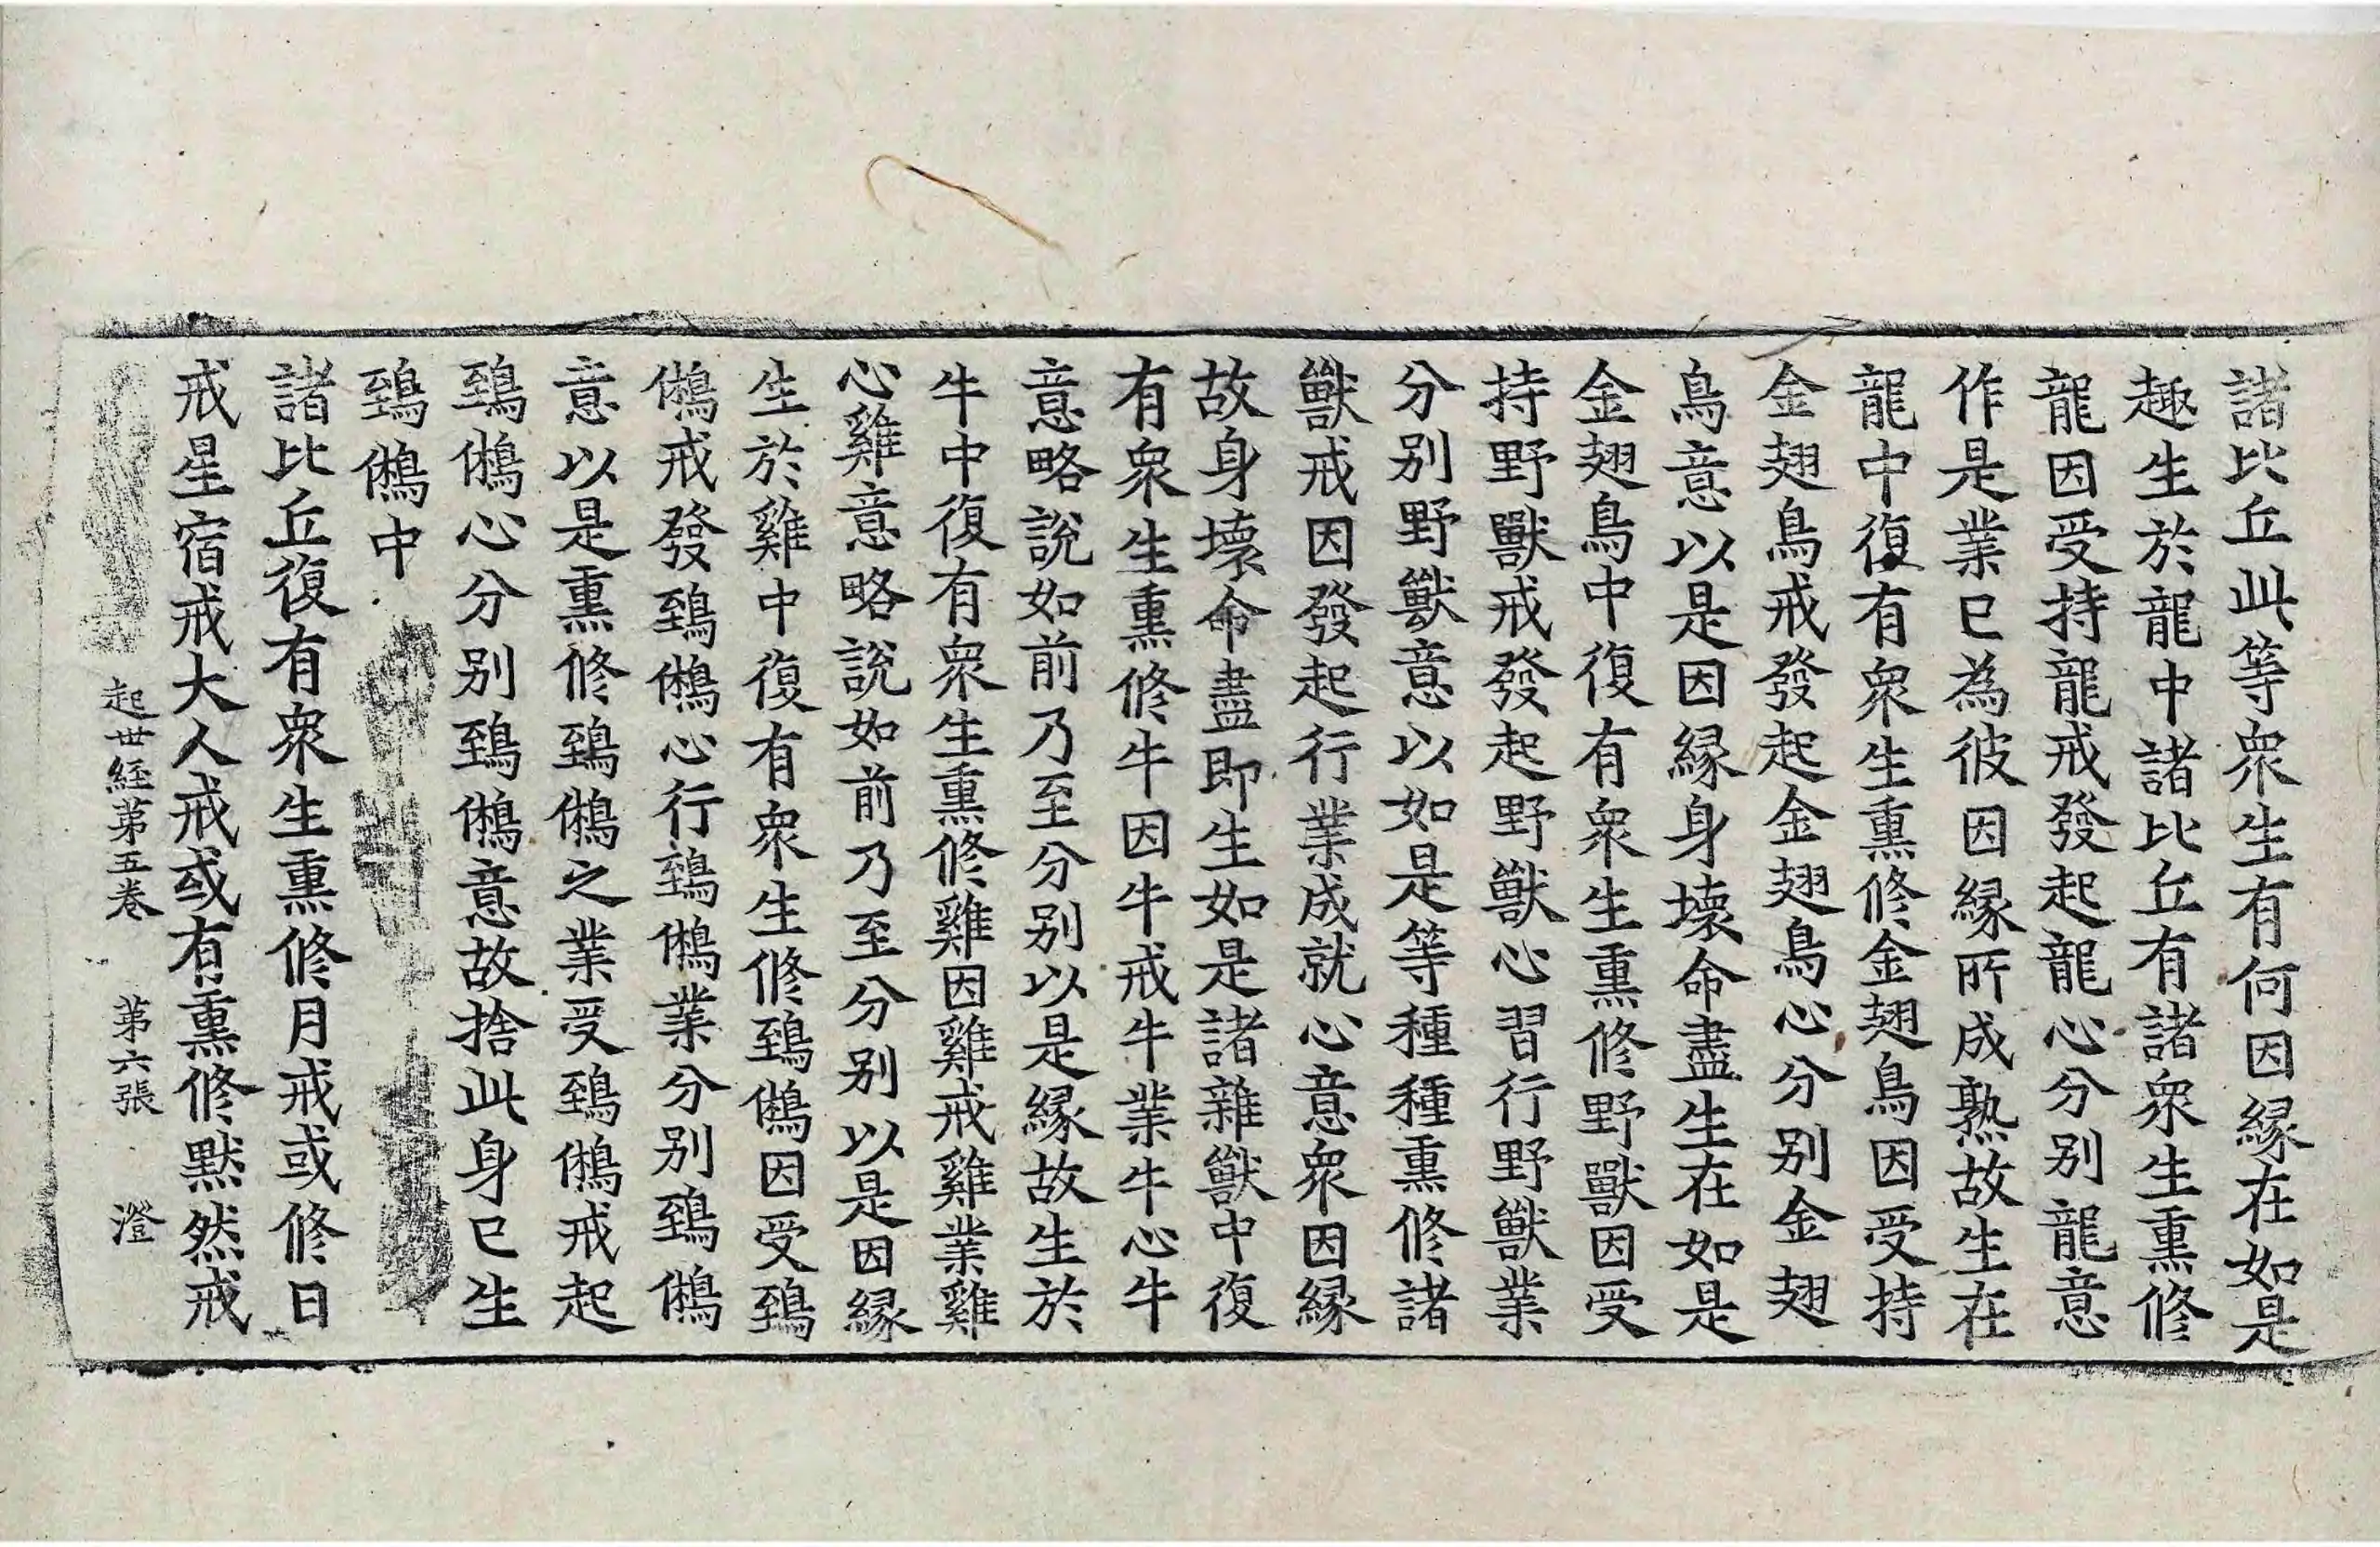 諸比丘此等衆生有何因縁在如是
趣生於龍中諸比丘有諸衆生熏修
龍因受持龍戒發起龍心分别龍意
作是業已為彼因縁所成熟故生在
龍中復有衆生熏修金翅鳥因受持
金翅鳥戒發起金翅鳥心分别金翅
鳥意以是因縁身壞命盡生在如是
金翅鳥中復有衆生熏修野獸因受
持野獸戒發起野獸心習行野獸業
分别野獸意以如是等種種熏修諸
獸戒因發起行業成就心意衆因縁
故身壞命盡即生如是諸雜獸中復
有衆生熏修牛因牛戒牛業牛心牛
意略說如前乃至分别以是縁故生於
牛中復有衆生熏修雞因雞戒雞業雞
心雞意略說如前乃至分别以是因縁
生於雞中復有衆生修鵄鵂因受鵄
鵂戒發鵄鵂心行鵄鵂業分别鵄鵂
意以是熏修鵄鵂之業受鵄鵂戒起
鵄鵂心分别鵄鵂意故捨此身已生
鵄鵂中
諸比丘復有衆生熏修月戒或修日
戒星宿戒大人戒或有熏修默然戒
起世経苐五卷 苐六張 澄